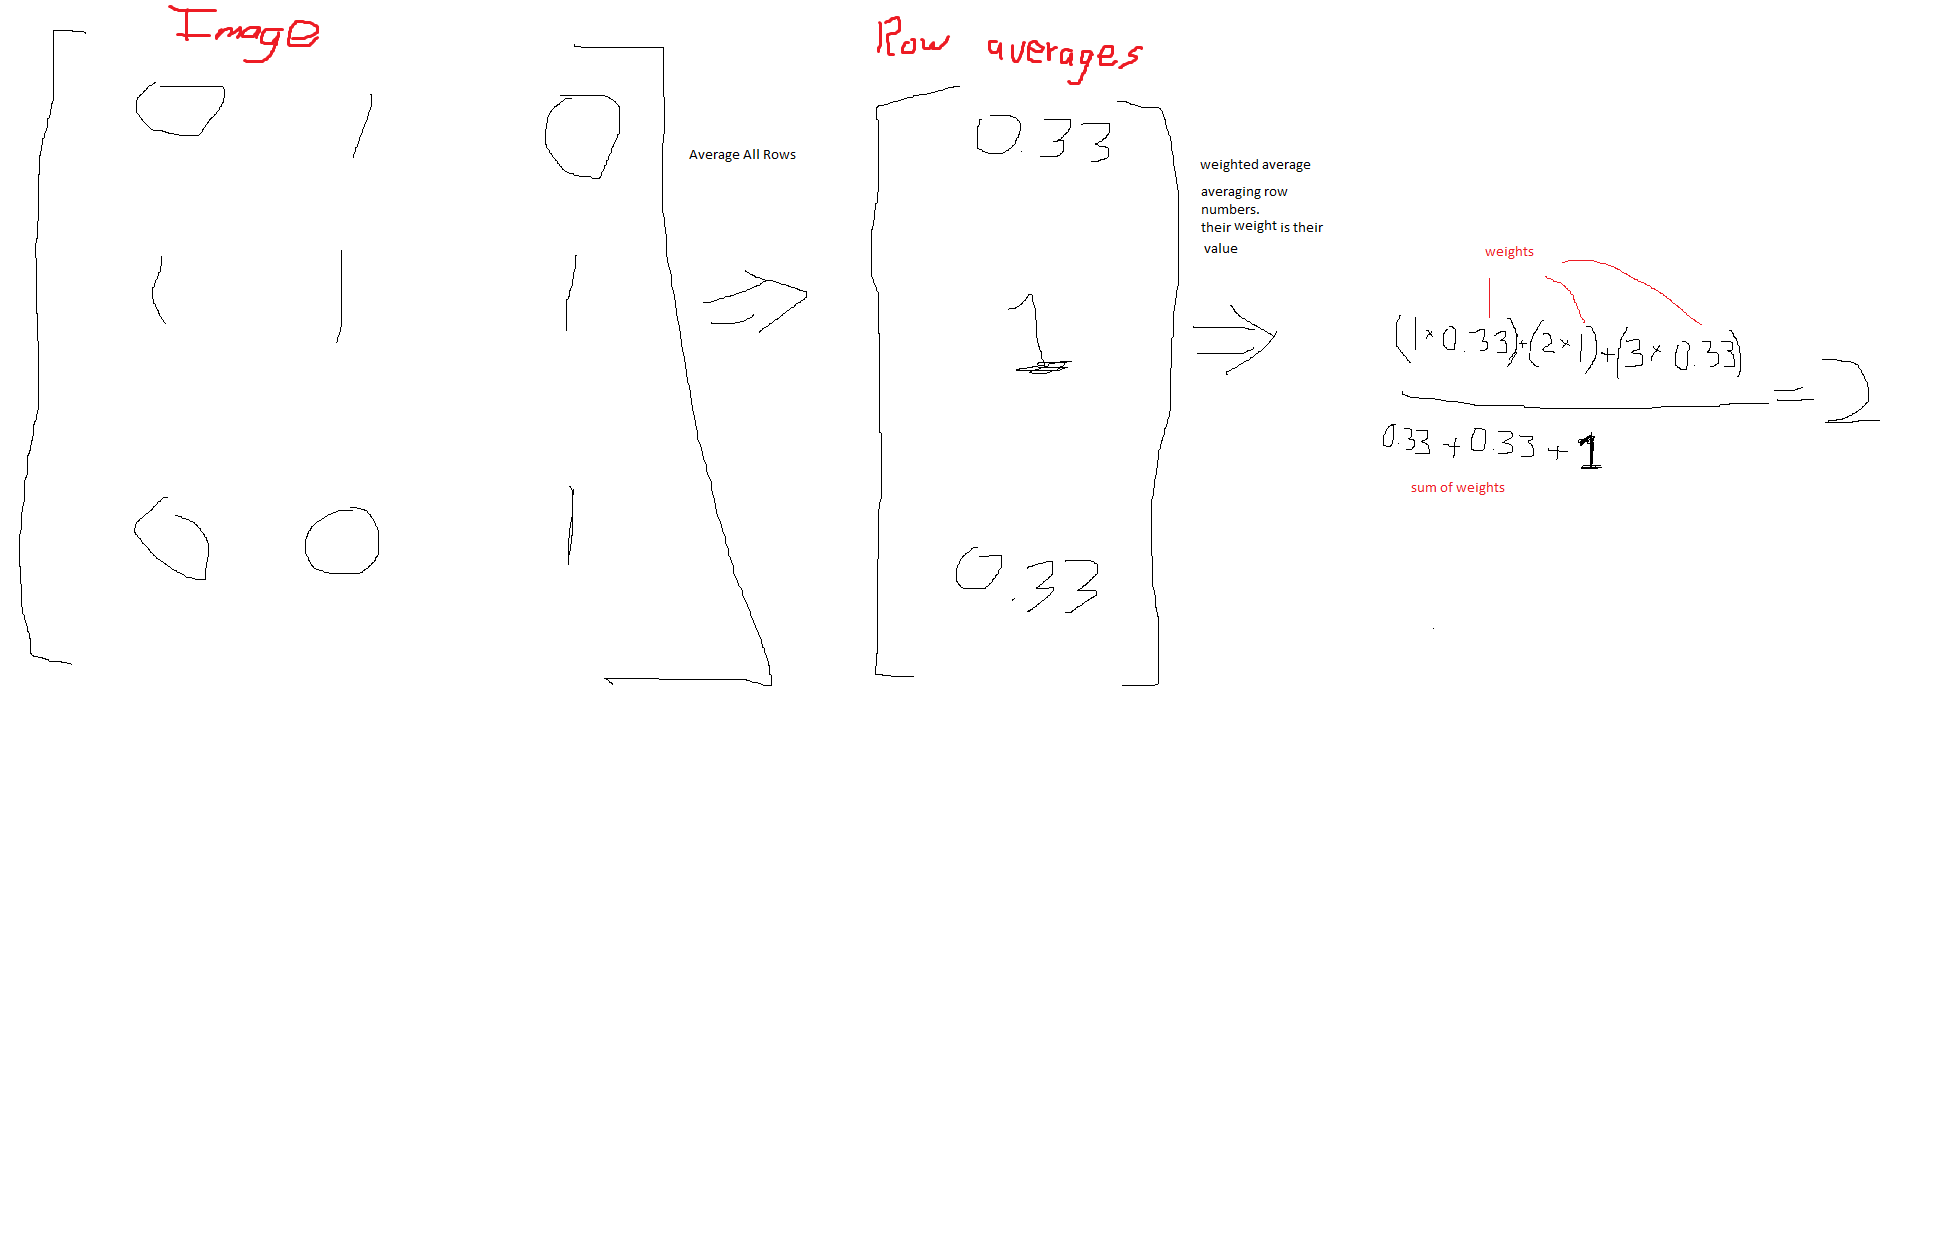 Image
0 1 0
1 1 1
0 0 1
Average All Rows
Row averages
0.33
1
0.33
weighted average
averaging row
numbers.
their weight is their
value
weights
(1×0.33)+(2×1)+(3×0.33)
0.33+0.33+1
= 2
sum of weights